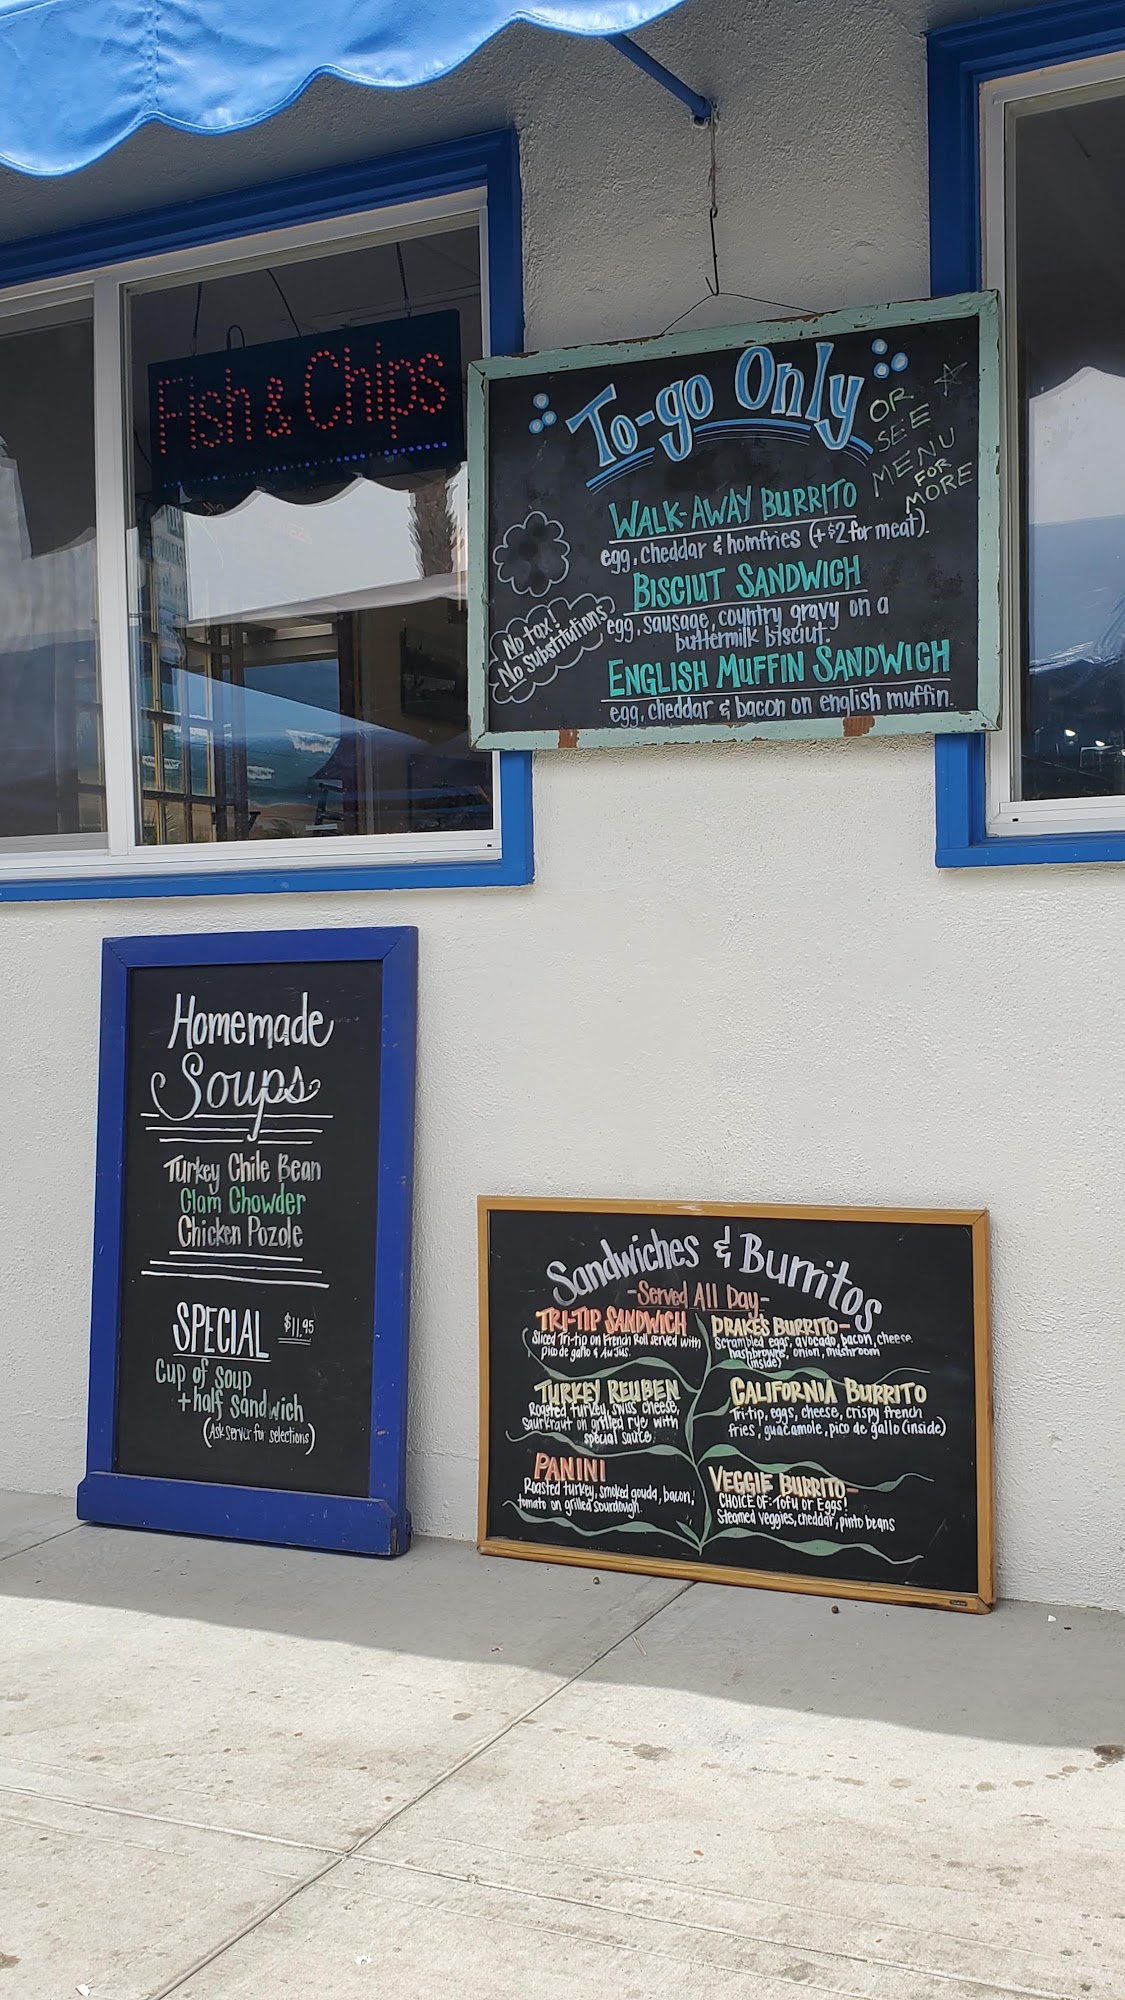 Fish & Chips
To-go Only
OR
SEE
MENU
FOR
MORE
WALK-AWAY BURRITO
egg, cheddar & homfries (+$2 for meat).
BISCIUT SANDWICH
egg, sausage, country gravy on a
buttermilk bisciut.
ENGLISH MUFFIN SANDWICH
egg, cheddar & bacon on english muffin.
No tax!
No Substitutions
Homemade
Soups
Turkey Chile Bean
Clam Chowder
Chicken Pozole
SPECIAL $11.95
Cup of Soup
+ half Sandwich
(Ask server for selections)
Sandwiches & Burritos
-Served All Day-
TRI-TIP SANDWICH
Sliced Tri-tip on French Roll served with
Pico de gallo & Au Jus.
TURKEY REUBEN
Roasted turkey, swiss cheese,
Saurkraut on grilled rye with
special sauce
PANINI
Roasted turkey, smoked gouda, bacon,
tomato on grilled sourdough.
DRAKE'S BURRITO-
Scrambled eggs, avocado, bacon, cheese,
hashbrowns, onion, mushroom
(inside)
CALIFORNIA BURRITO
Tri-tip, eggs, cheese, crispy french
fries, guacamole, pico de gallo (inside)
VEGGIE BURRITO-
CHOICE OF: TOFU or Eggs!
Steamed veggies, cheddar, pinto beans